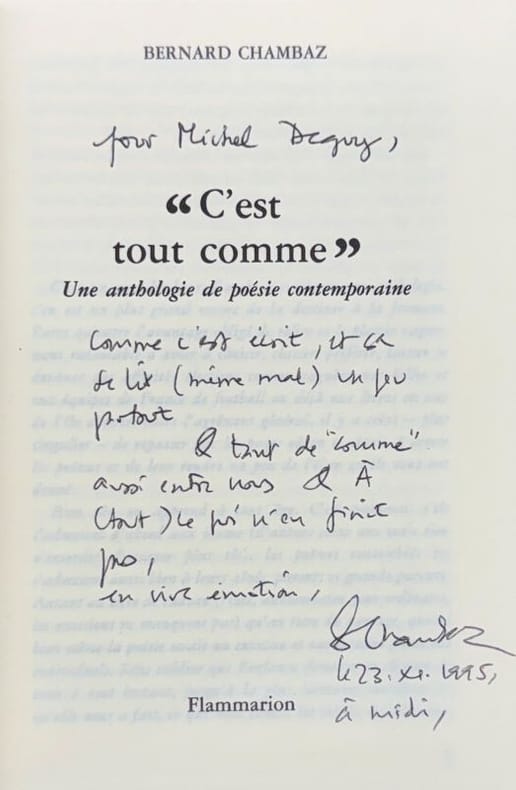 BERNARD CHAMBAZ
pour Michel Deguy,
“C’est
tout comme”
Une anthologie de poésie contemporaine
Comme c'est écrit, et ça
se lit (même mal) un peu
partout
& tant de "comme"
aussi entre nous & À
(tout) ce qui n'en finit
pas,
en vive émotion,
B Chambaz
le 23.XI.1995,
à midi,
Flammarion